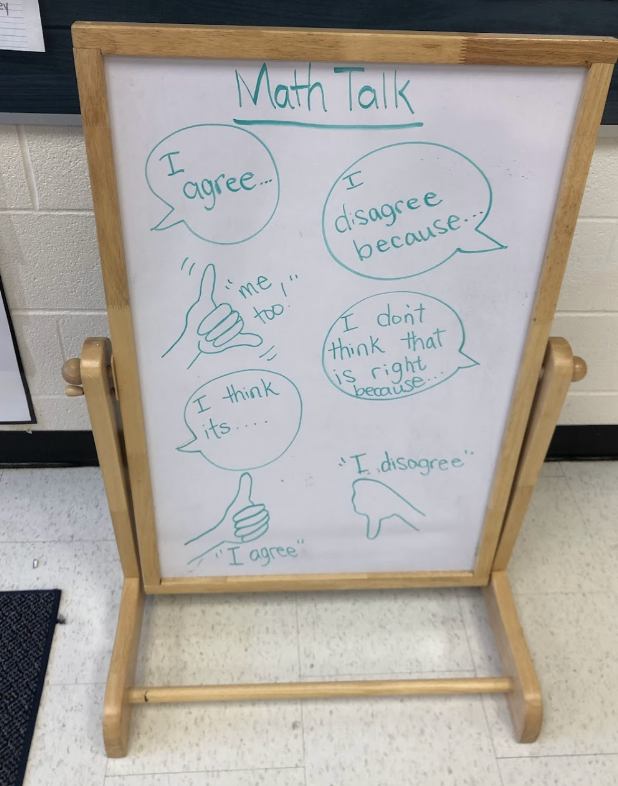 Math Talk
I
agree...
I
disagree
because...
"me
too!"
I don't
think that
is right
because...
I think
its....
"I disagree"
"I agree"